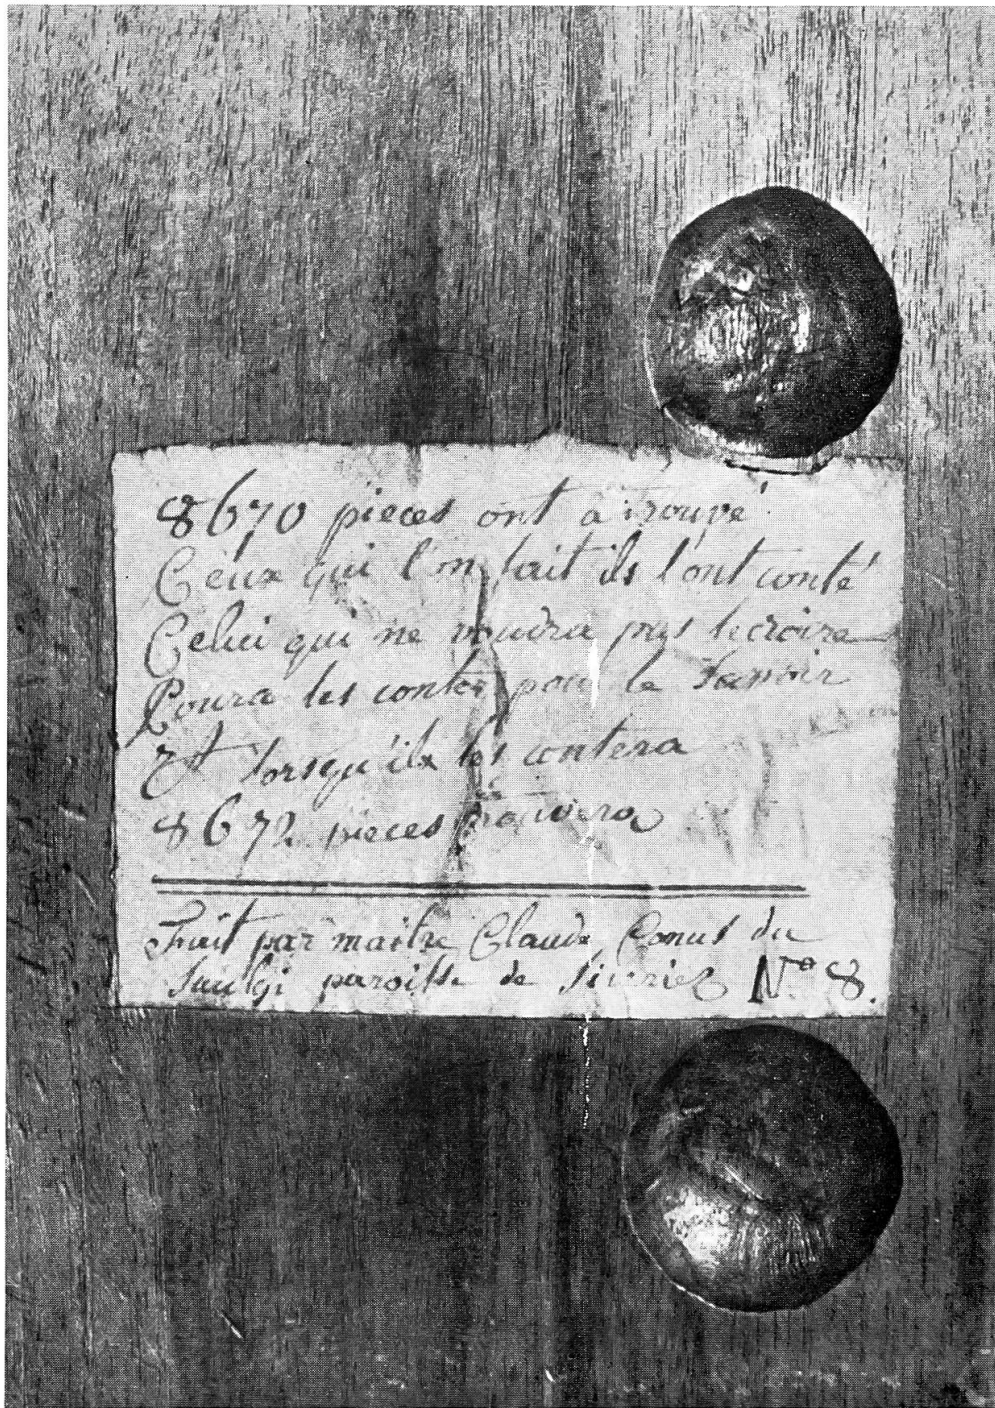 8670 pieces ont à trouvé
Ceux qui l'on fait ils l'ont conté
Celui qui ne voudra pas lecroire
Poura les conter pour le savoir
Et lorsqu'ils les contera
8672 pieces trouvera
Fait par maitre Claude Conus du
Saulgi paroisse de Siviriez N° 8.